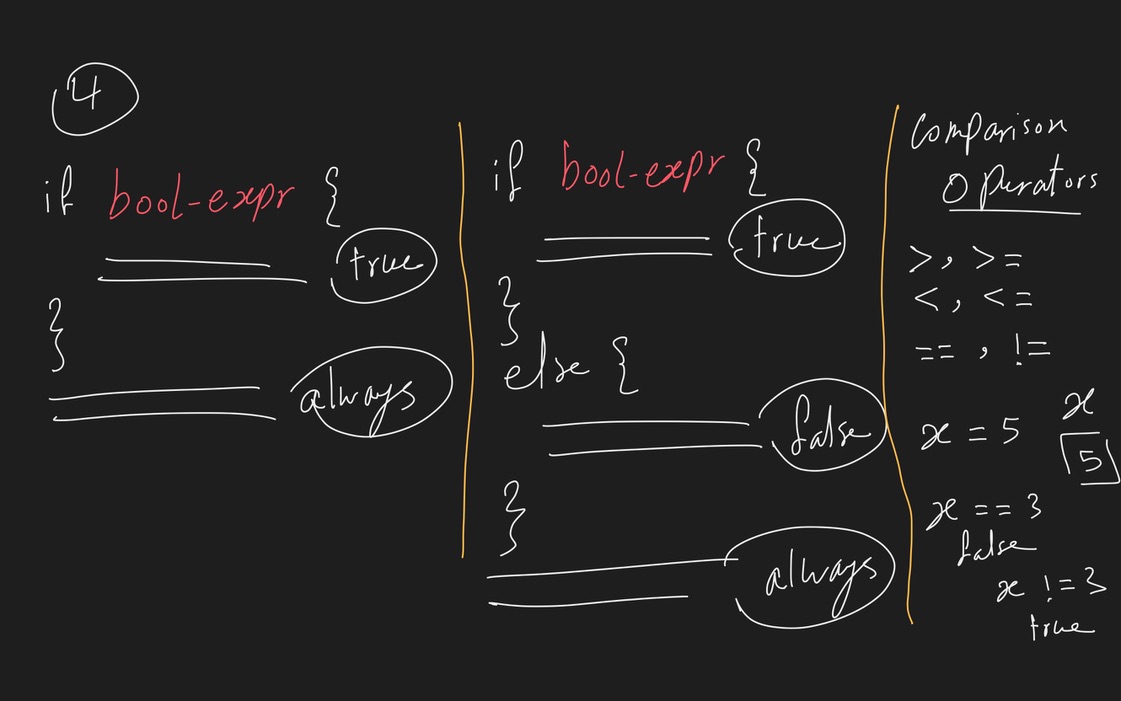 4
if bool-expr {
true
}
always
if bool-expr {
true
}
else {
false
}
always
Comparison
Operators
>, >=
<, <=
==, !=
x = 5
x
5
x == 3
false
x != 3
true